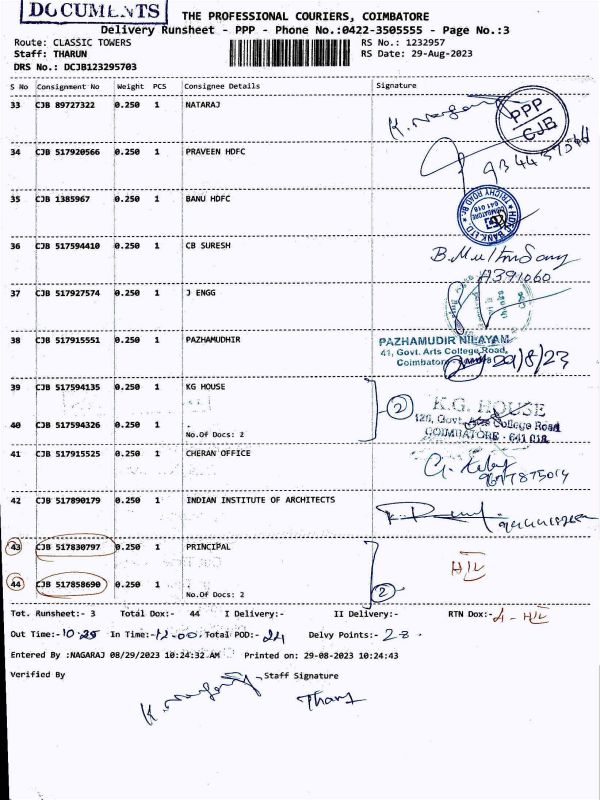 DOCUMENTS
THE PROFESSIONAL COURIERS, COIMBATORE
Delivery Runsheet - PPP - Phone No.:0422-3505555 - Page No.:3
Route: CLASSIC TOWERS RS No.: 1232957
Staff: THARUN RS Date: 29-Aug-2023
DRS No.: DCJB123295703
S No Consignment No Weight PCS Consignee Details Signature
33 CJB 89727322 0.250 1 NATARAJ
PPP
CJB
34 CJB 517920566 0.250 1 PRAVEEN HDFC
35 CJB 1385967 0.250 1 BANU HDFC
36 CJB 517594410 0.250 1 CB SURESH
A391060
37 CJB 517927574 0.250 1 J ENGG
38 CJB 517915551 0.250 1 PAZHAMUDHIR
PAZHAMUDIR NILAYAM
41, Govt. Arts College Road,
29/8/23
39 CJB 517594135 0.250 1 KG HOUSE
2 K.G. HOUSE
126, Govt. Arts College Road
COIMBATORE - 641 018
40 CJB 517594326 0.250 1 .
No.Of Docs: 2
41 CJB 517915525 0.250 1 CHERAN OFFICE
42 CJB 517890179 0.250 1 INDIAN INSTITUTE OF ARCHITECTS
43 CJB 517830797 0.250 1 PRINCIPAL
44 CJB 517858690 0.250 1 .
No.Of Docs: 2 2
Tot. Runsheet:- 3 Total Dox:- 44 I Delivery:- II Delivery:- RTN Dox:-
Out Time:- In Time:-12.00 Total POD:- Delvy Points:- 28.
Entered By :NAGARAJ 08/29/2023 10:24:32 AM Printed on: 29-08-2023 10:24:43
Verified By Staff Signature